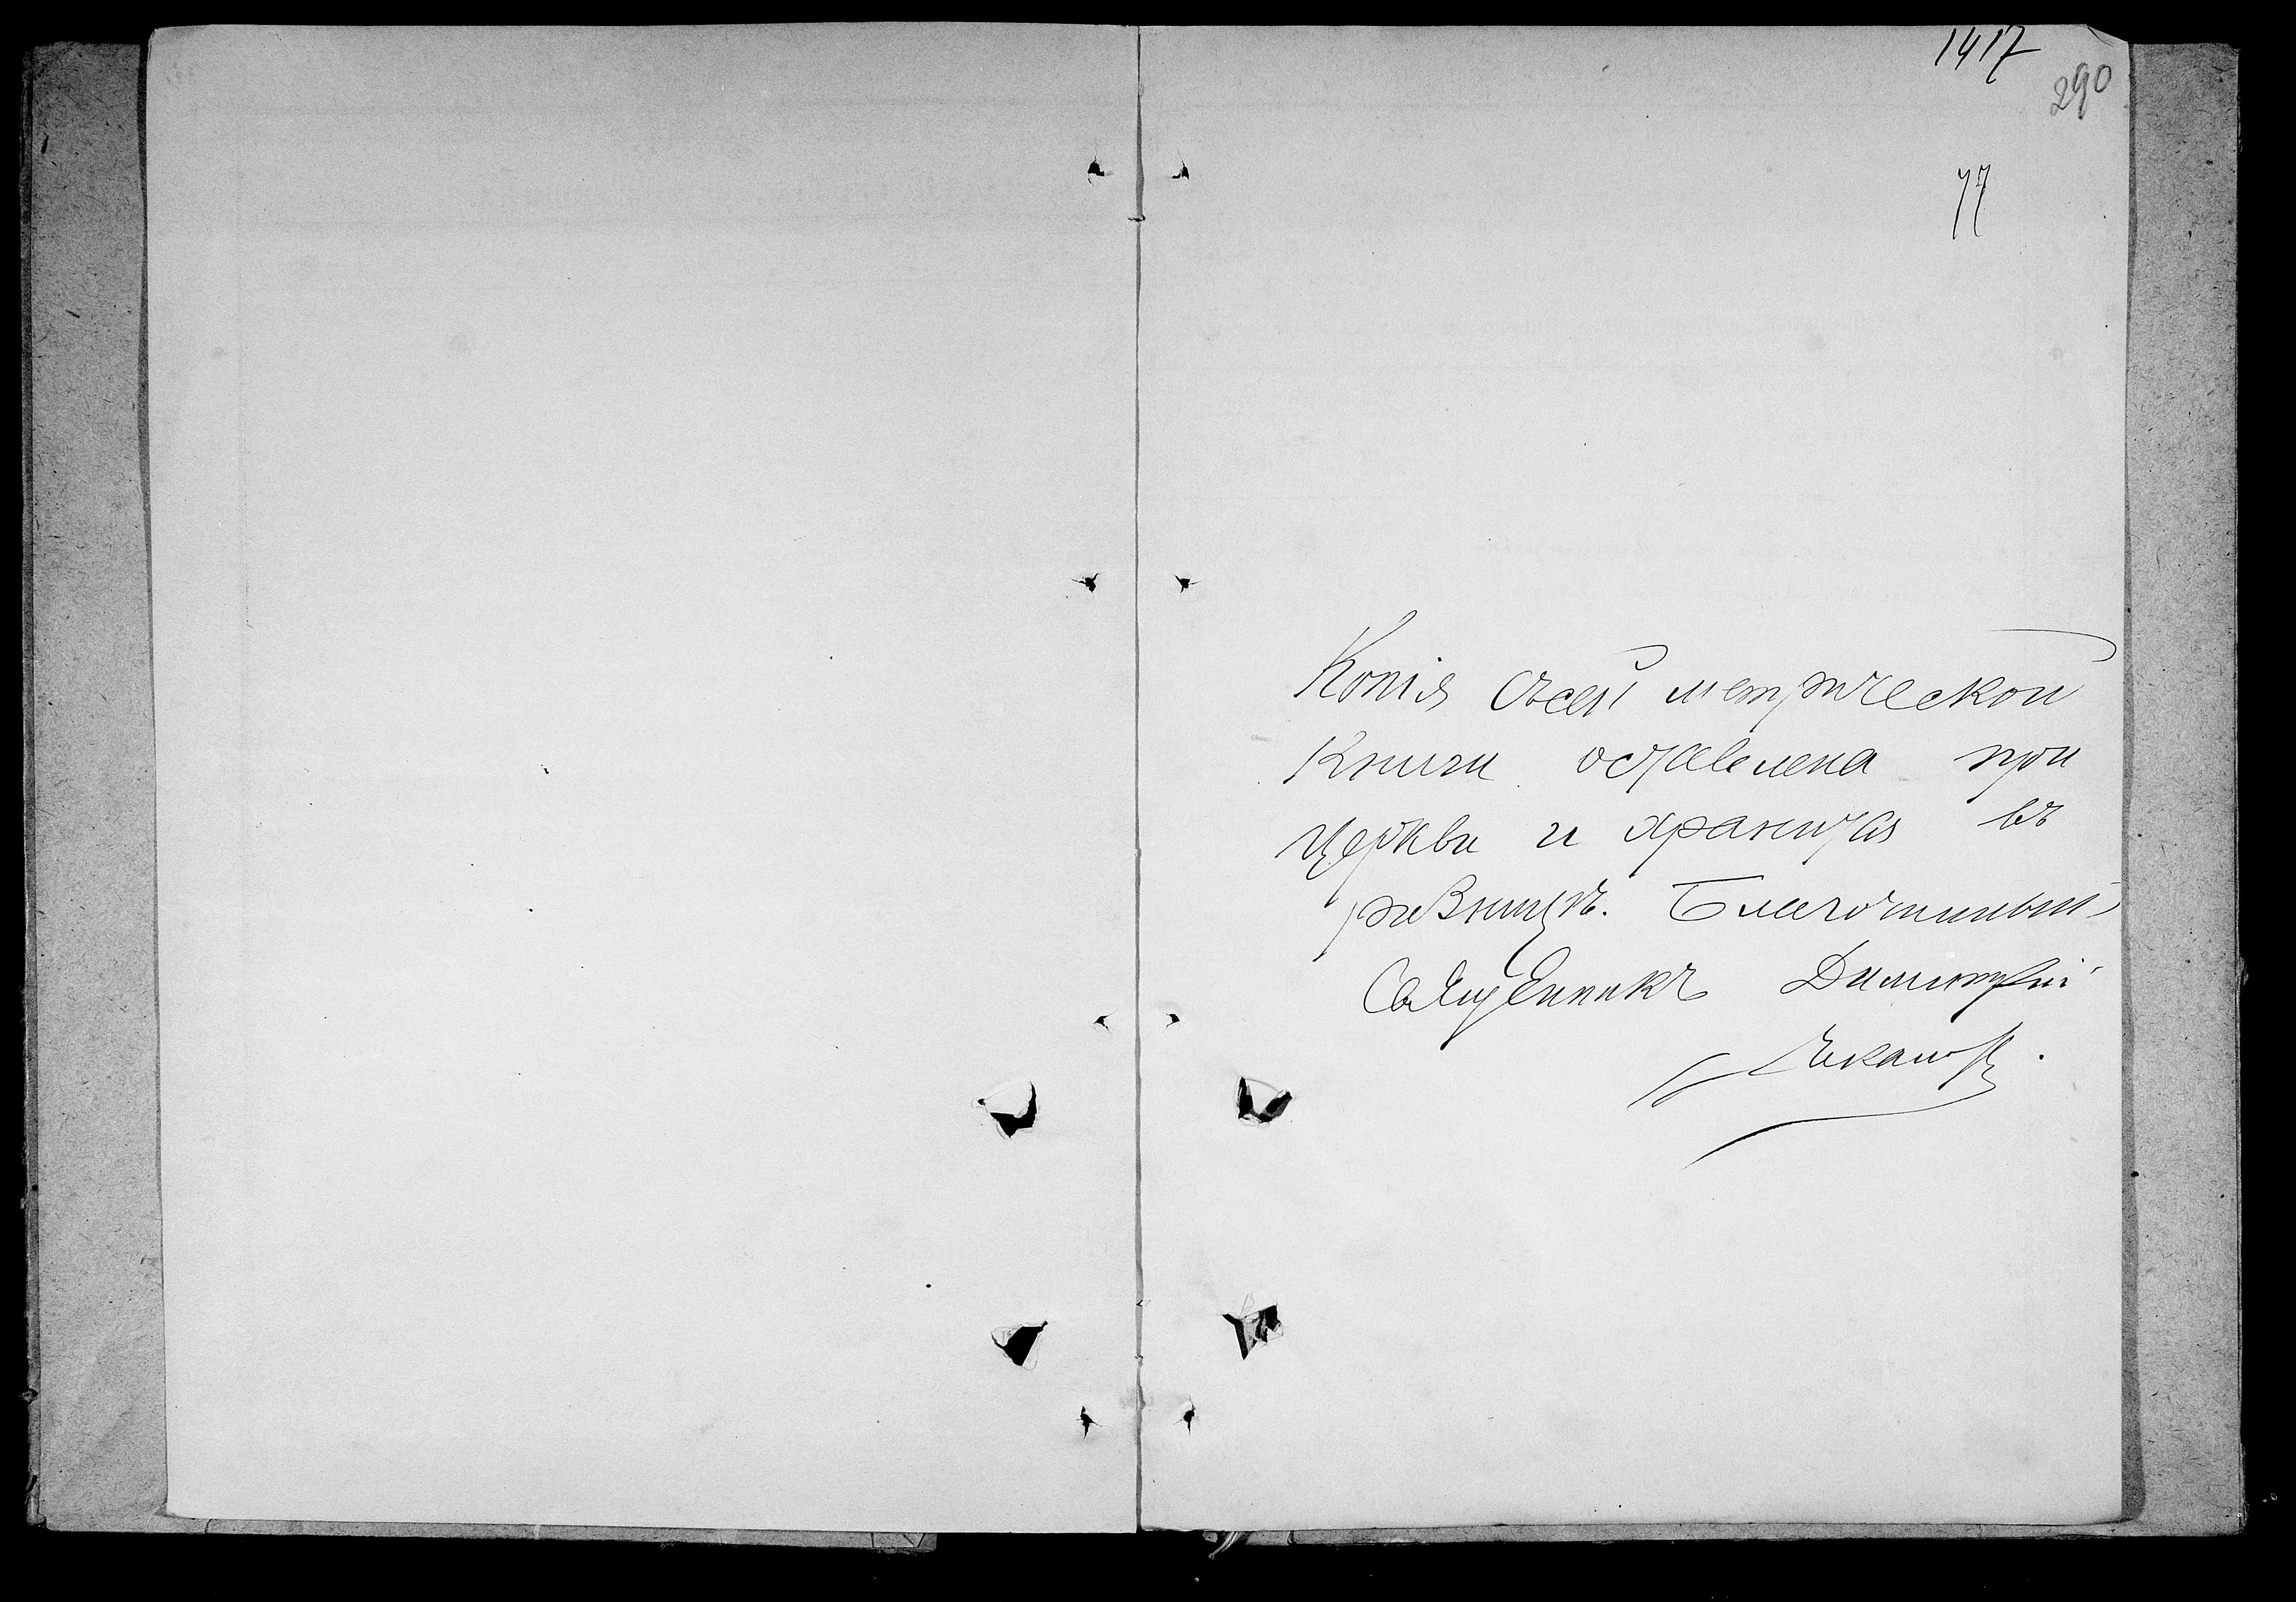 1417
290
77
Копія съсей метрической
Книги оставлена при
Церкви и хранится въ
ризницѣ. Благочинный
Священникъ Димитрій